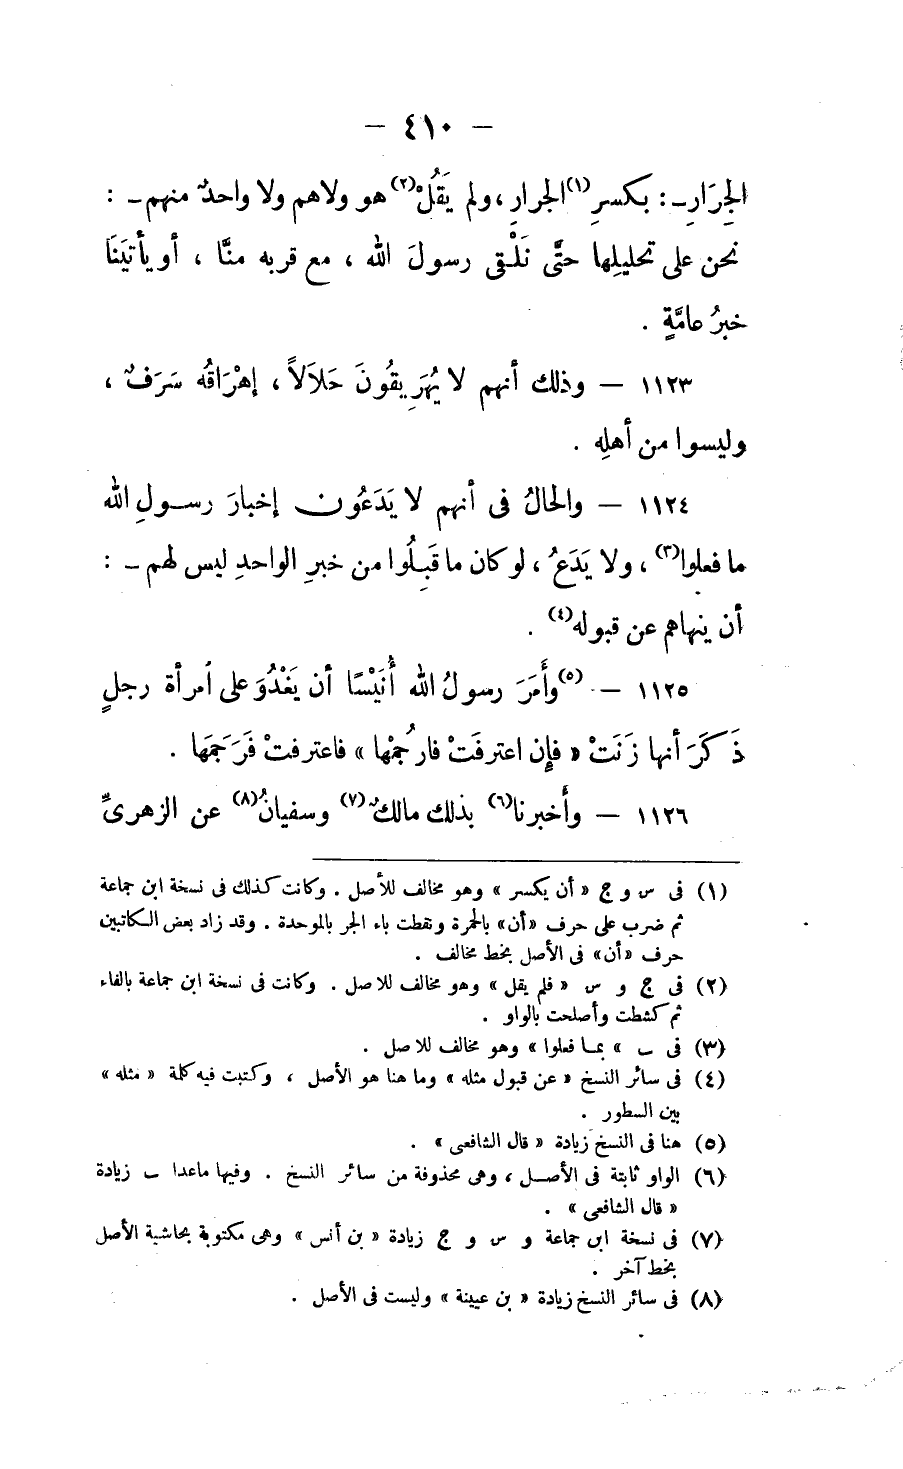 — ٤١٠ —
الجِرَارِ ــ : بكسرِ (١) الجرارِ ، ولم يَقُلْ (٢) هو ولاهم ولا واحدٌ منهم ــ :
نحن على تحليلِها حتَّى نَلْقى رسولَ الله ، مع قربه منَّا ، أو يأتيَنَا
خبرُ عامَّةٍ .
١١٢٣ — وذلك أنهم لا يُهَرِيقُونَ حَلَالاً ، إهْرَاقُه سَرَفٌ ،
وليسوا من أهلِه .
١١٢٤ — والحالُ فى أنهم لا يَدَعُون إخبارَ رسـولِ الله
ما فعلوا (٣) ، ولا يَدَعُ ، لو كان ما قَبِلُوا من خبرِ الواحدِ ليس لهم ــ :
أن ينهاهم عن قبوله (٤) .
١١٢٥ — (٥) وأَمَرَ رسولُ الله أُنَيْسًا أن يَغْدُوَ على أمرأة رجلٍ
ذَكَرَ أنها زَنَتْ « فإن اعترفَتْ فارجُمْها » فاعترفتْ فَرَجَمَها .
١١٢٦ — وأخبرنا (٦) بذلك مالكٌ (٧) وسفيانُ (٨) عن الزهرىِّ
(١) فى س و ج « أن يكسر » وهو مخالف للأصل . وكانت كذلك فى نسخة ابن جماعة
ثم ضرب على حرف « أن » بالحمرة ونقطت باء الجر بالموحدة . وقد زاد بعض الكاتبين
حرف « أن » فى الأصل بخط مخالف .
(٢) فى ج و س « فلم يقل » وهو مخالف للاصل . وكانت فى نسخة ابن جماعة بالفاء
ثم كشطت وأصلحت بالواو .
(٣) فى ب » بمـا فعلوا » وهو مخالف للاصل .
(٤) فى سائر النسخ « عن قبول مثله » وما هنا هو الأصل ، وكتبت فيه كلمة « مثله »
بين السطور .
(٥) هنا فى النسخ زيادة « قال الشافعى » .
(٦) الواو ثابتة فى الأصـل ، وهى محذوفة من سائر النسخ . وفيها ماعدا ب زيادة
« قال الشافعى » .
(٧) فى نسخة ابن جماعة و س و ج زيادة « بن أنس » وهى مكتوبة بحاشية الأصل
بخط آخر .
(٨) فى سائر النسخ زيادة « بن عيينة » وليست فى الأصل .